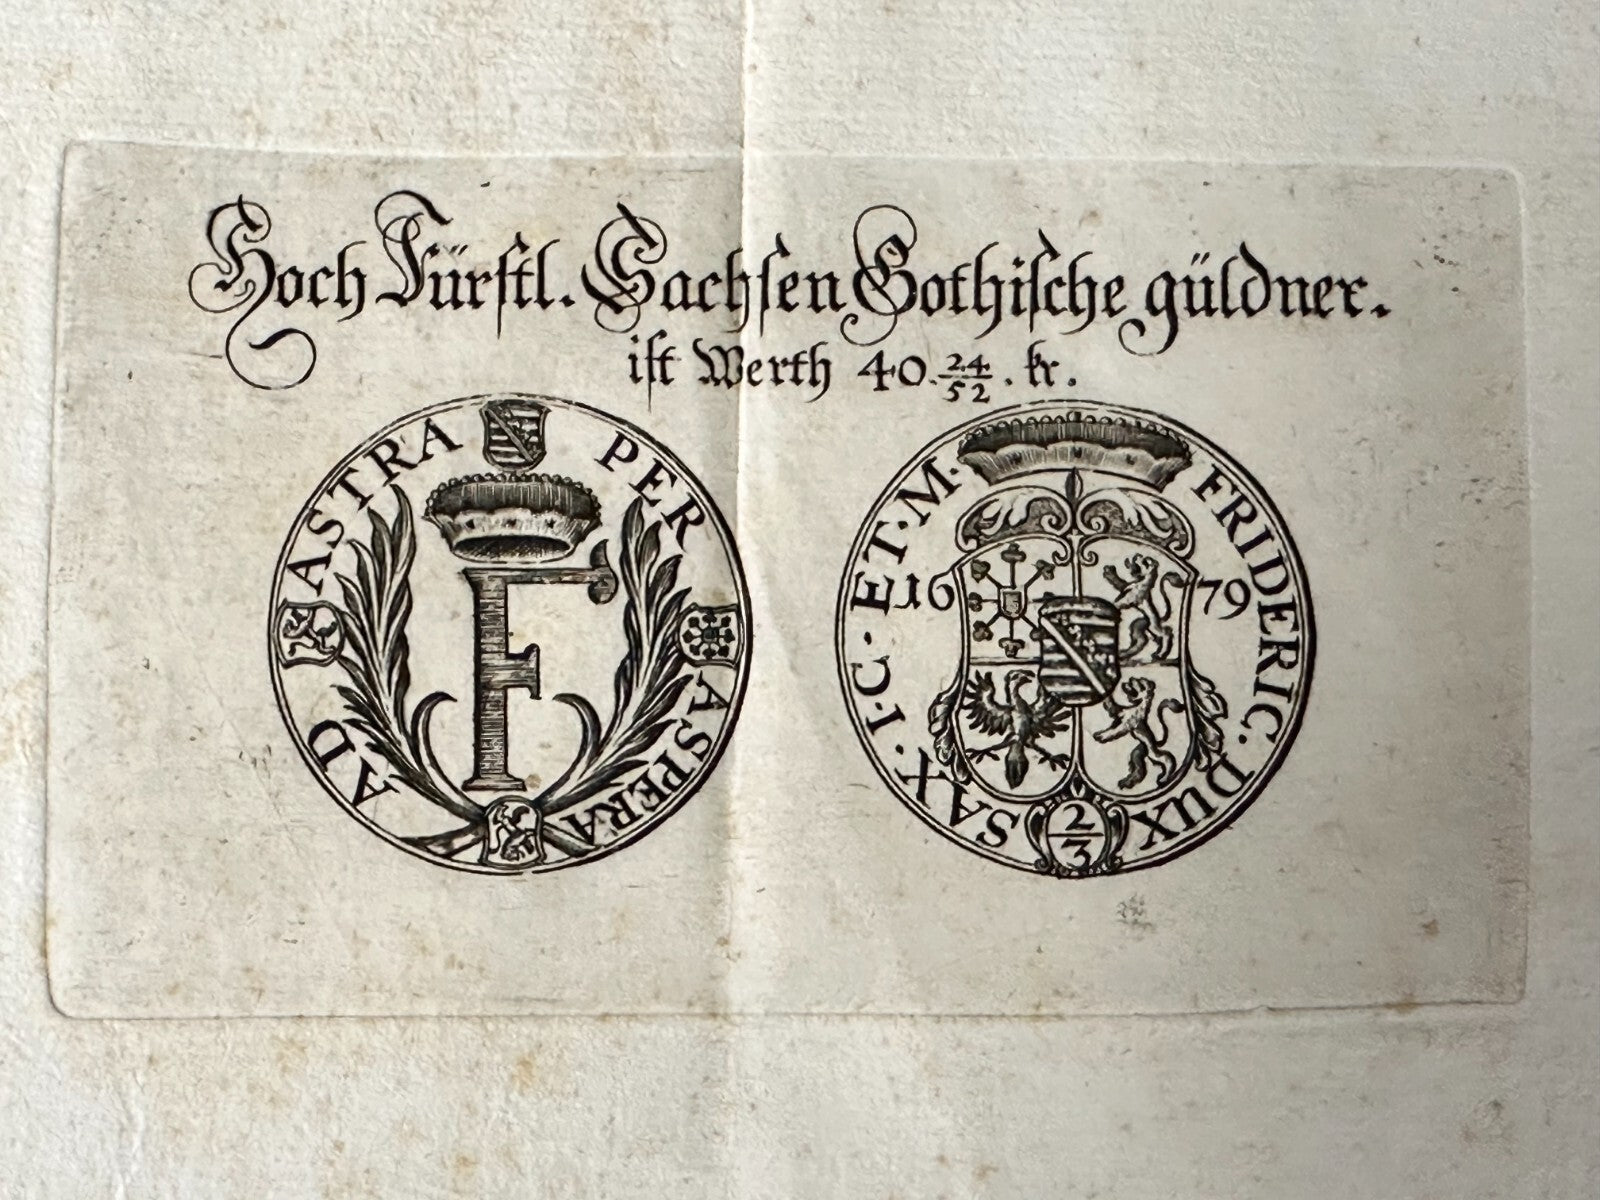 Hoch Fürstl. Sachsen Gothische güldner.
ist Werth 40. 24/52. kr.
PER ASPERA AD ASTRA
F
FRIDERIC. DUX SAX. I. C. ET. M.
1679
2/3